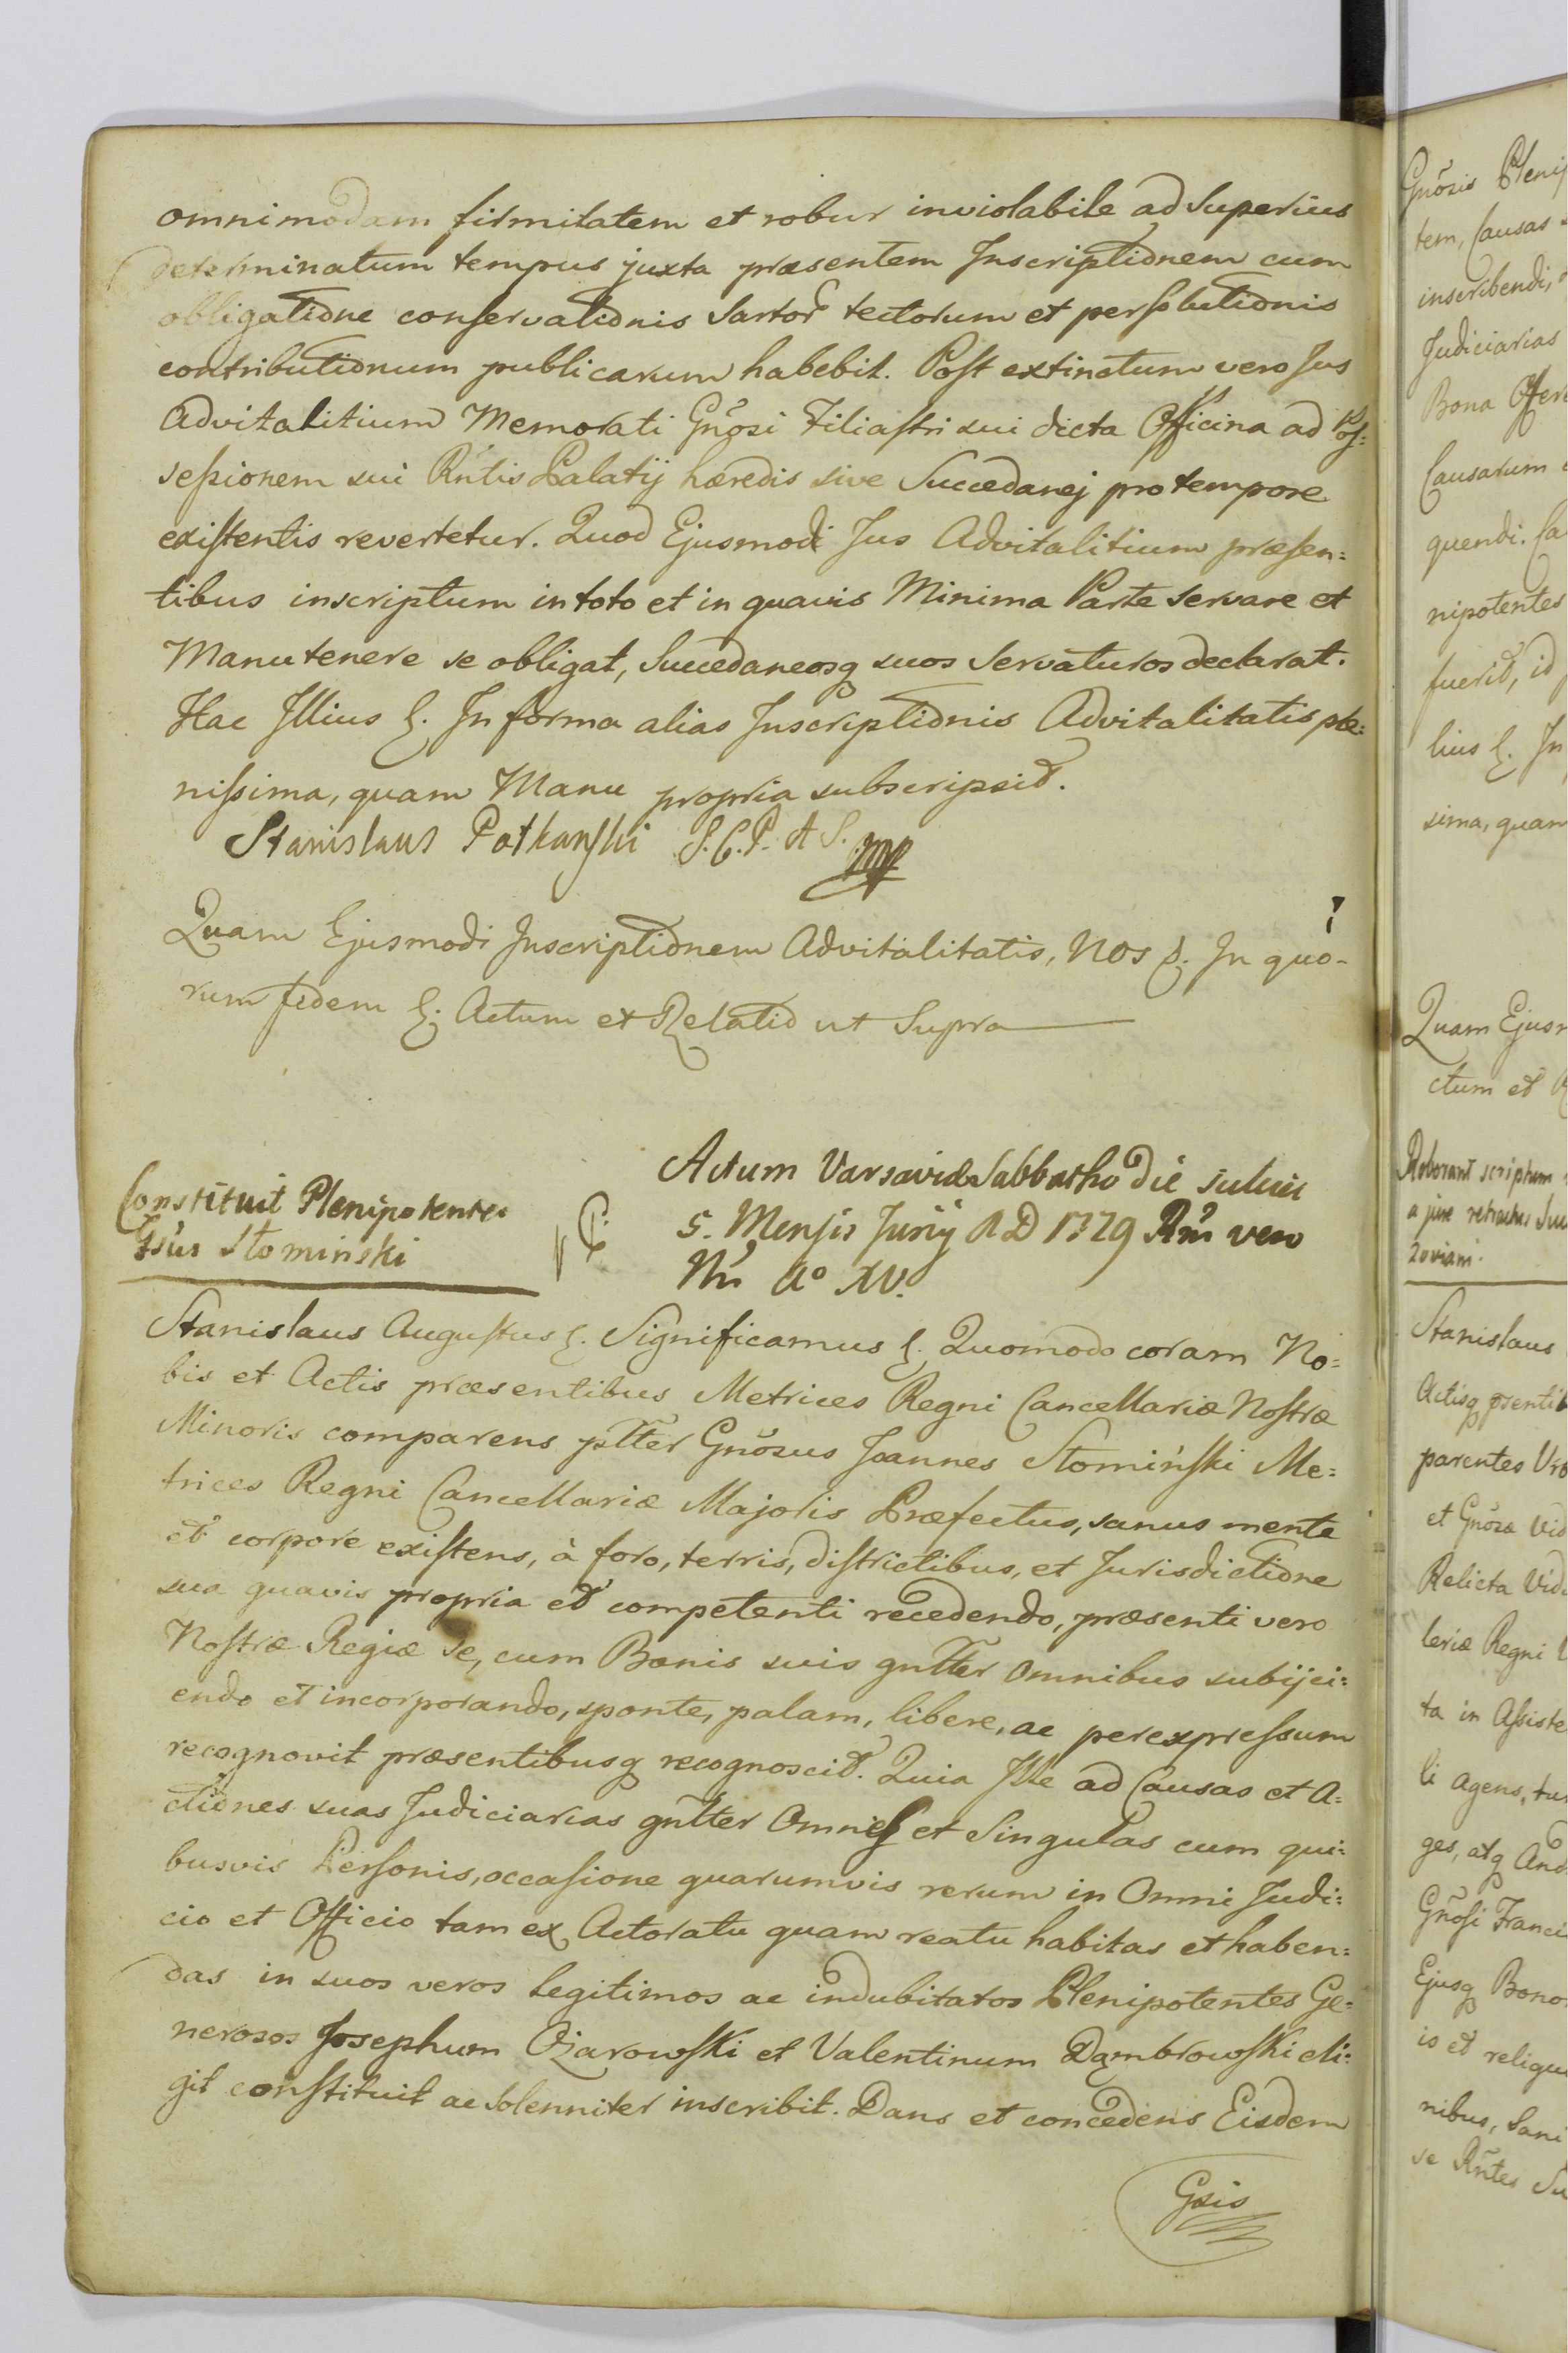 omnimodam firmitatem et robur inviolabile ad superius
determinatum tempus juxta præsentem Inscriptionem cum
obligatione conservationis Sartor tectorum et persolutionis
contributionum publicarum habebit. Post extinctum vero Jus
Advitalitium Memorati Gnosi Filiastri sui dicta Officina ad Pos:
sessionem sui Rntis Palatij hæredis sive Succedanej pro tempore
existentis revertetur. Quod Ejusmodi Jus Advitalitium præsen:
tibus inscriptum in toto et in quavis Minima Parte servare et
Manutenere se obligat, Succedaneosq suos servaturos declarat.
Hac Illius &. In forma alias Inscriptionis Advitalitatis ple:
nissima, quam Manu propria subscripsit.
Stanislaus Potkanski S.C.P. A S. mp
Quam Ejusmodi Inscriptionem Advitalitatis, Nos &. In quo-
rum fidem &. Actum et Relatio ut Supra
Constituit Plenipotentes
Gsus Słomiński
Actum Varsaviæ Sabbatho die
5. Mensis Junij A D 1779 Rni vero
Nri Ao XV.
Stanislaus Augustus &. Significamus &. Quomodo coram No:
bis et Actis præsentibus Metrices Regni Cancellariæ Nostræ
Minoris comparens pltter Gnosus Joannes Słomiński Me:
trices Regni Cancellariæ Majoris Præfectus, sanus mente
et corpore existens, à foro, terris, districtibus, et Jurisdictione
sua quavis propria et competenti recedendo, præsenti vero
Nostræ Regiæ se, cum Bonis suis gnltter omnibus subijci:
endo et incorporando, sponte, palam, libere, ac per expressum
recognovit præsentibusq recognoscit. Quia Ille ad Causas et A:
ctiones suas Judiciarias gnltter Omnes et Singulas cum qui:
busvis Personis, occasione quarumvis rerum in Omni Judi:
cio et Officio tam ex Actoratu quam reatu habitas et haben:
das in suos veros legitimos ac indubitatos Plenipotentes Ge:
nerosos Josephum Ożarowski et Valentinum Dąmbrowski eli:
git constituit ac solenniter inscribit. Dans et concedens Eisdem
Gsis
Gnosis Plenip
tem, Causas
inscribendi,
Judiciarias
Bona Offere
Causarum
quendi. Ca
nipotentes
fuerit, id
lius &. In
sima, quam
Quam Ejusm
ctum et R
Roborant scriptum
a jure retractus
Stanislaus
Actisq psentib
parentes Uro
et Gnosa Vid
Relicta Vid
leriæ Regni
ta in Assiste
li agens, tu
ges, atq And
Gnosi Franci
Ejusq Bono
is et reliqu
nibus, Sani
se Rntes Su